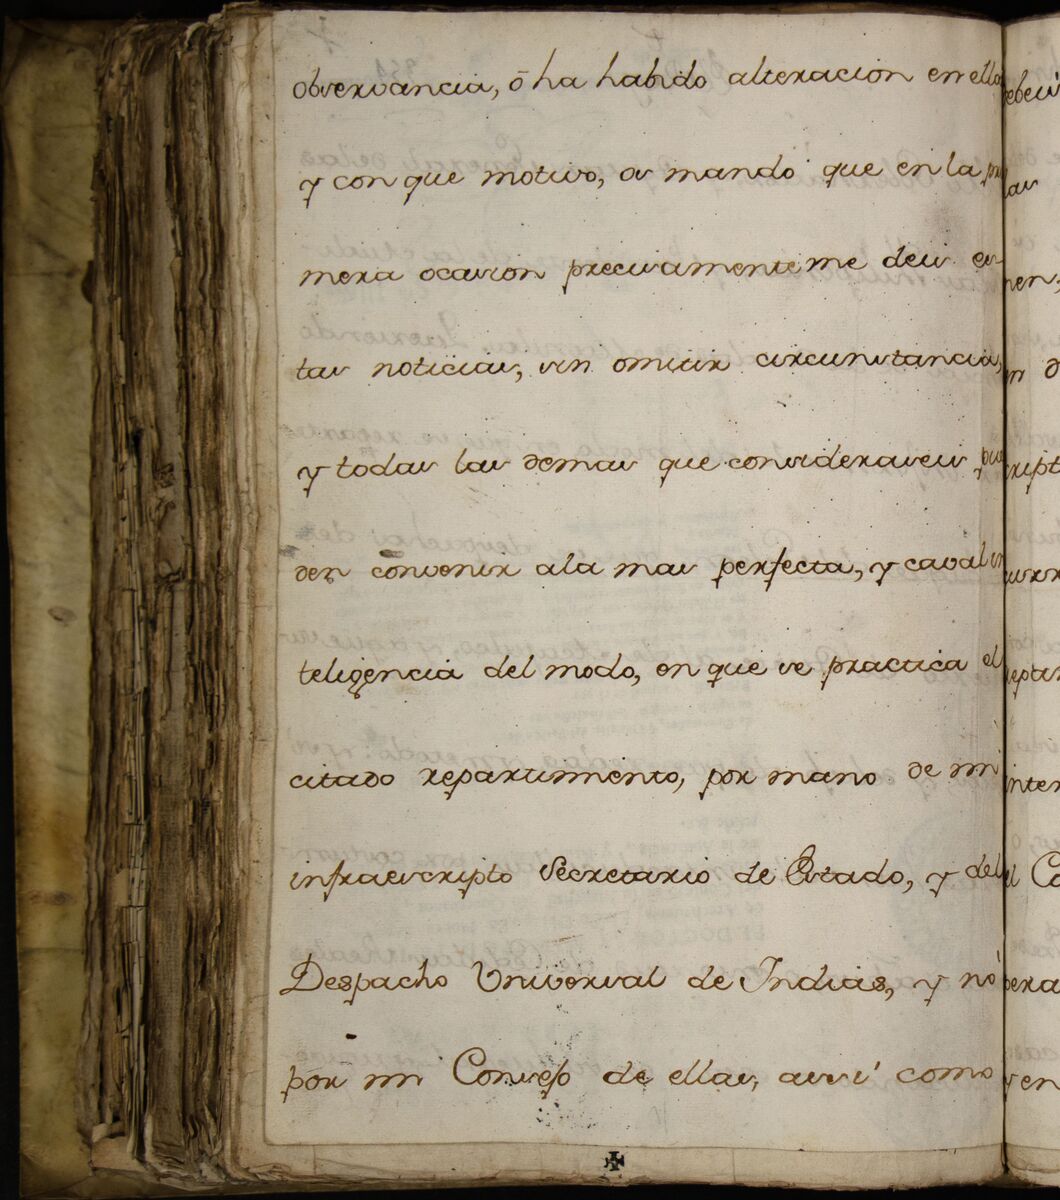 observancia, ó ha habido alteracion en ella
y con que motivo, os mando que en la pri
mera ocasion precisamente me deis es
tas noticias, sin omitir circunstancia,
y todas las demas que consideraseis pue
den convenir a la mas perfecta, y caval in
teligencia del modo, en que se practica el
citado repartimiento, por mano de mi
infraescripto Secretario de Estado, y del
Despacho Universal de Indias, y nó
por mi Consejo de ellas, assi como